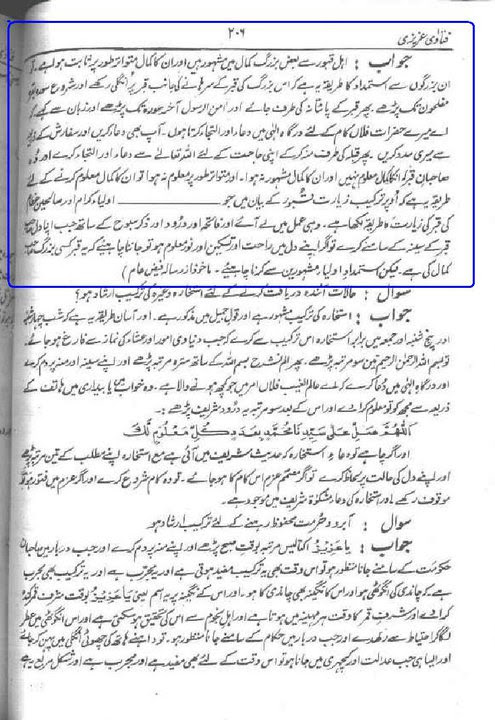 فتاوی عزیزی ۲۰۶
جواب : اہل قبور سے بعض بزرگ کمال میں مشہور ہیں اور ان کا کمال متواتر طور پر ثابت ہوا ہے۔ تو
ان بزرگوں سے استمداد کا طریقہ یہ ہے کہ اس بزرگ کی قبر کے سرہانے کی جانب قبر پر انگلی رکھے اور شروع سورہ بقرہ سے
مفلحون تک پڑھے پھر قبر کے پائتانہ کی طرف جائے اور امن الرسول آخر سورہ تک پڑھے اور زبان سے کہے کہ
اے میرے حضرات فلاں کام کے لئے درگاہ الٰہی میں دعاء اور التجا کرتا ہوں۔ آپ بھی دعا کریں اور سفارش کے ذریعہ
سے میری مدد کریں۔ پھر قبلہ کی طرف منہ کر کے اپنی حاجت کے لئے اللہ تعالےٰ سے دعاء اور التجاء کرے اور وہ
صاحبان قبر کہ انکا کمال معلوم نہیں اور ان کا کمال مشہور نہ ہوا۔ اور متواتر طور پر معلوم نہ ہوا تو ان کا کمال معلوم کرنے کا
طریقہ یہ ہے کہ اوپر ترکیب زیارت قبور کے بیان میں جو اولیاء کرام اور صالحین عظام
کی قبر کی زیارت کا طریقہ لکھا ہے۔ وہی عمل میں لے آئے اور فاتحہ اور درود اور ذکر سبوح کے ساتھ جب اپنا دل
قبر کے سینہ کے سامنے کرے تو اگر اپنے دل میں راحت اور تسکین اور نور معلوم ہو تو جاننا چاہیئے کہ یہ قبر کسی بزرگ صاحب
کمال کی ہے۔ لیکن استمداد اولیاء مشہورین سے کرنا چاہیئے۔ ماخوذ از رسالہ فیض عام )
سوال : حالات آئندہ دریافت کرنے کے لئے استخارہ وغیرہ کی ترکیب ارشاد ہو؟
جواب : استخارہ کی ترکیب مشہور ہے اور قول جمیل میں مذکور ہے۔ اور آسان طریقہ یہ ہے کہ شب چہارشنبہ
اور پنج شنبہ اور جمعہ میں برابر استخارہ اس ترکیب سے کرے کہ جب دنیاوی امور اور عشاء کی نماز سے فارغ ہو جائے۔
تو بسم اللہ الرحمٰن الرحیم تین سو مرتبہ پڑھے۔ پھر الم نشرح بسم اللہ کے ساتھ سترہ مرتبہ پڑھے۔ اور اپنے سینہ اور منہ پر دم کرے
اور درگاہ الٰہی میں دعا کرے کہ اے عالم الغیب فلاں امر میں جو کچھ ہونے والا ہے۔ وہ خواب میں یا بیداری میں ہاتف کے
ذریعہ سے مجھ کو تو معلوم کرا دے اور اس کے بعد سو مرتبہ یہ درود شریف پڑھے :۔
اَللّٰهُمَّ صَلِّ عَلٰی سَیِّدِنَا مُحَمَّدٍ بِعَدَدِ کُلِّ مَعْلُوْمٍ لَّکَ
اور اگر چاہے تو دعاء استخارہ کہ حدیث شریف میں آئی ہے مع استخارہ اپنے مطلب کے تین مرتبہ پڑھے
اور اپنے دل کی حالت پر لحاظ کرے تو اگر مصمم عزم اس کام کا ہو جائے۔ تو وہ کام شروع کرے اور اگر عزم میں فتور ہو تو
موقوف رکھے۔ اور استخارہ کی دعاء مشکوٰۃ شریف میں موجود ہے۔
سوال : آبرو و حرمت محفوظ رہنے کے لئے ترکیب ارشاد ہو
جواب : یَا عَزِیْزُ اکتالیس مرتبہ بوقت صبح پڑھے اور اپنے منہ پر دم کرے اور جب دربار میں یا صاحبان
حکومت کے سامنے جانا منظور ہو تو اس وقت بھی یہ ترکیب مفید ہوتی ہے اور یہ مجرب ہے اور یہ ترکیب بھی مجرب
ہے کہ چاندی کی انگوٹھی ہو اور اس کا نگینہ بھی چاندی کا ہو۔ اور اس کے نگینہ پر یہ اسم یعنی یَا عَزِیْزُ بوقت شرف قمر کندہ
کرائے اور شرف قمر کا وقت ہر مہینہ میں ہوتا ہے اور اہل نجوم سے اس کی تحقیق ہو سکتی ہے اور اس انگوٹھی میں عطر
لگا کر احتیاط سے رکھدے اور جب دربار میں حکام کے سامنے جانا منظور ہو۔ تو داہنے ہاتھ کی چھوٹی انگلی میں پہن کر جائے
اور ایسا ہی جب عدالت اور کچہری میں جانا ہو تو اس وقت کے لئے بھی مفید ہے اور مجرب ہے اور شکل مربع یہ ہے